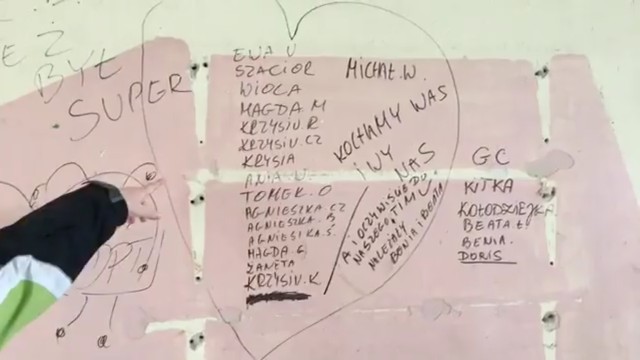 BYŁ
SUPER
EWA U
SZACIOR
WIOLA
MAGDA.M
KRZYSIU.R
KRZYSIU.CZ
KRYSIA
ANIA
TOMEK.O
AGNIESZKA.CZ
AGNIESZKA.B
AGNIESZKA.S.
MAGDA.G
ŻANETA
KRZYSIU.K
MICHAŁ.W.
KOCHAMY WAS
I WY
NAS
A I OCZYWIŚCIE DO
NASZEGO TIMU
NALEŻAŁY
BENIA I BEATA
GC
KITKA
BEATA.Ł
BENIA.
DORIS